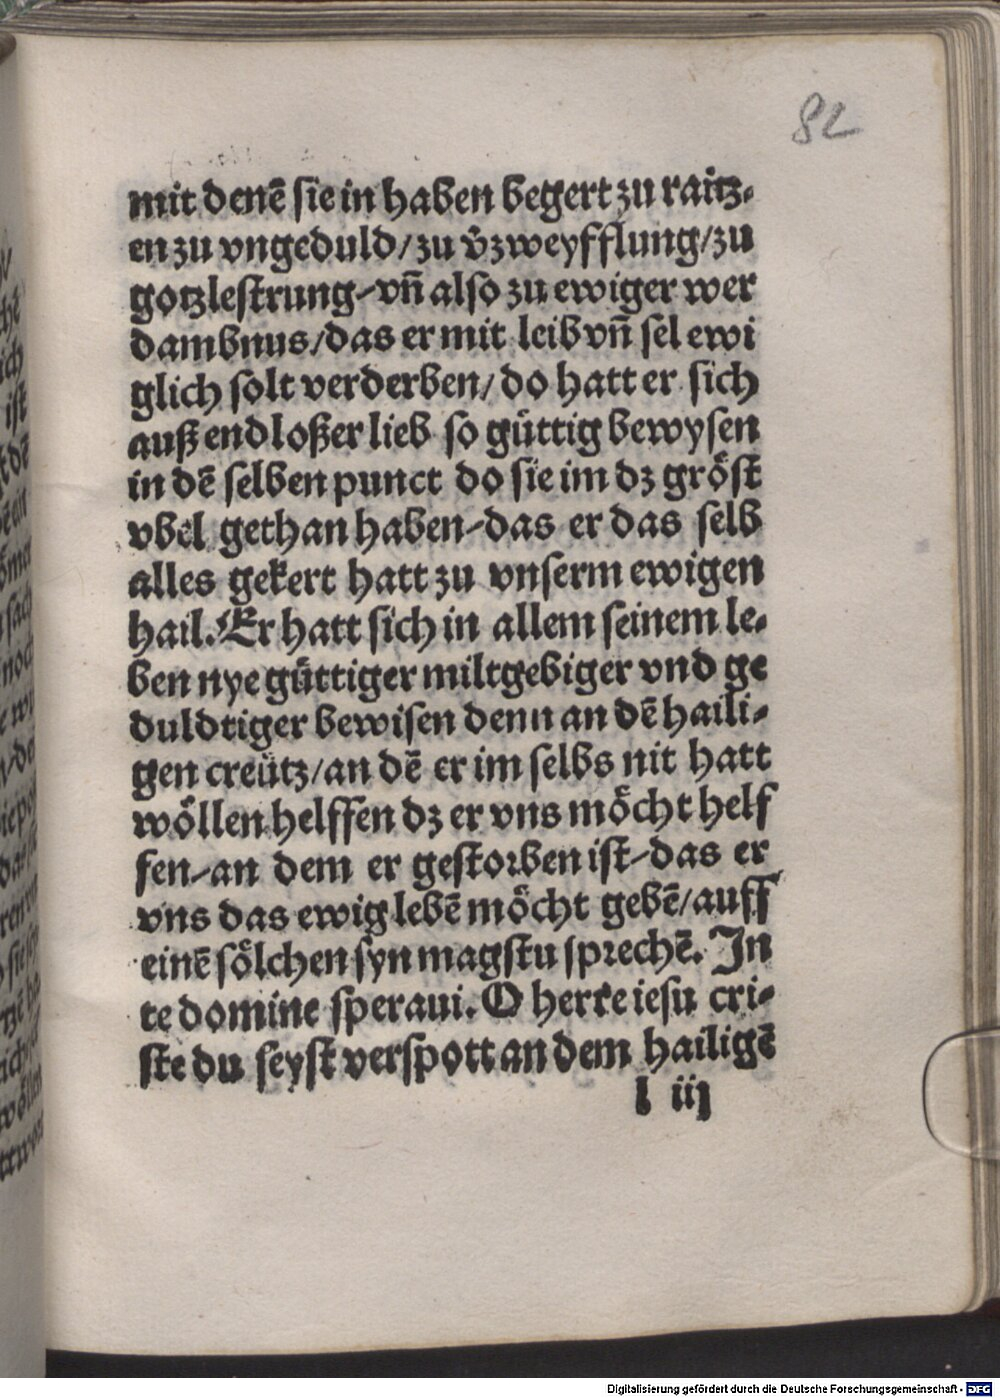 82
mit denē sie in haben begert zu raitz-
en zu vngeduld/zu v̄zweyfflung/zu
gotzlestrung/vn̄ also zu ewiger wer
dambnus/das er mit leib vn̄ sel ewi
glich solt verderben/do hatt er sich
auß endloßer lieb so gůttig bewysen
in dē selben punct do sie im dz gröst
vbel gethan haben/das er das selb
alles gekert hatt zu vnserm ewigen
hail. Er hatt sich in allem seinem le-
ben nye gůttiger miltgebiger vnd ge
duldtiger bewisen denn an dē haili-
gen creütz/an dē er im selbs nit hatt
wöllen helffen dz er vns möcht helf
fen/an dem er gestorben ist/das er
vns das ewig lebē möcht gebē/auff
einē sölchen syn magstu sprechē. In
te domine speraui. O herre iesu cri-
ste du seyst verspott an dem hailigē
l iij
Digitalisierung gefördert durch die Deutsche Forschungsgemeinschaft - DFG